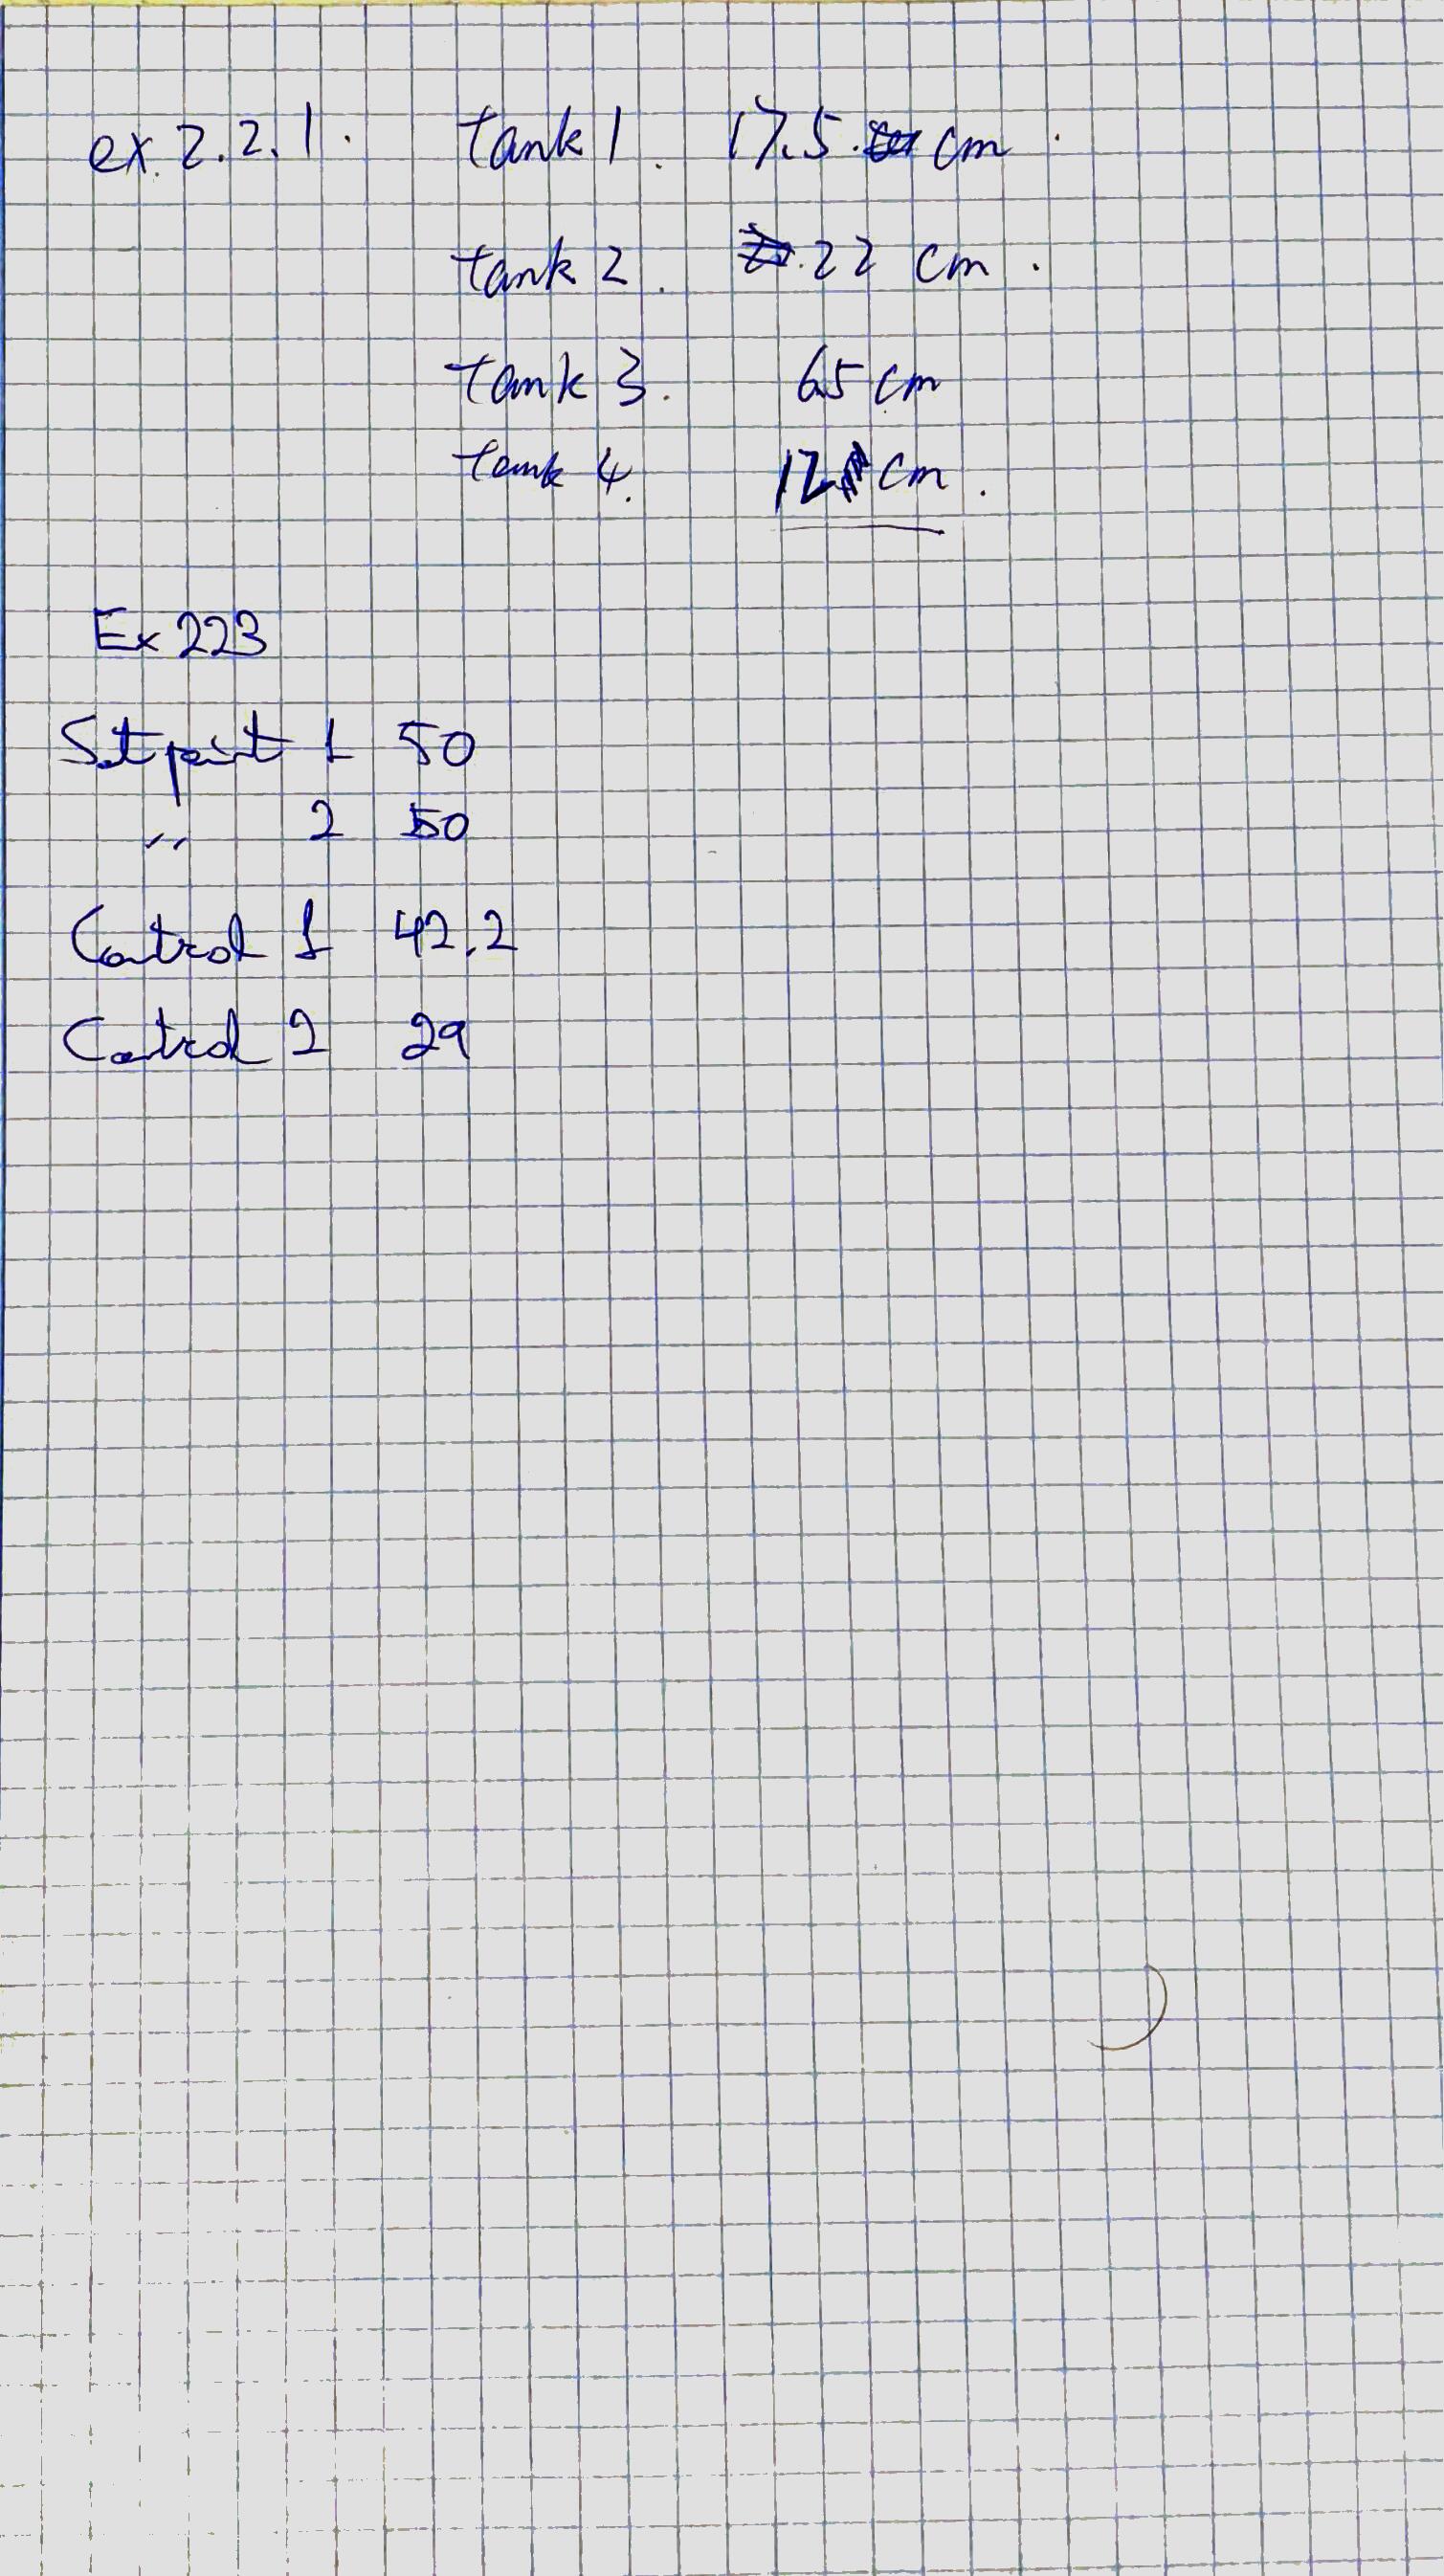 ex. 2.2.1. tank 1. 17.5 cm.
tank 2. 22 cm.
tank 3. 6.5 cm
tank 4. 12 cm.
Ex 223
Setpoint 1 50
〃 2 50
Control 1 42.2
Control 2 29